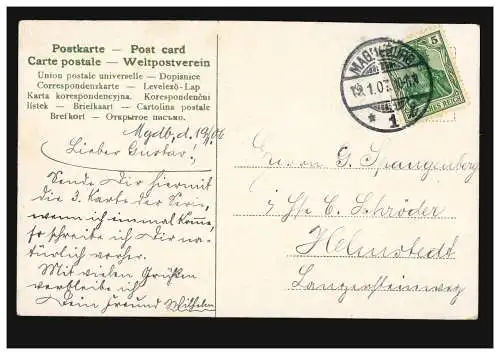 Postkarte — Post card
Carte postale — Weltpostverein
Union postale universelle — Dopisnice
Correspondenzkarte — Levelező-Lap
Karta korespondencyjna, Korespondenční
lístek — Briefkaart — Cartolina postale
Brefkort — Открытое письмо.
Mgdb, d. 19/1 06
Lieber Gustav!
Sende Dir hiermit
die 3. Karte der Serie,
wenn ich einmal komme,
so schreibe ich Dir na-
türlich vorher.
Mit vielen Grüßen
verbleibe ich
Dein Freund Wilhelm
MAGDEBURG
19.1.07. 10-11V
* 1
5
DEUTSCHES REICH
G. Spangenberg
C. Schröder
Helmstedt
Langersteinweg